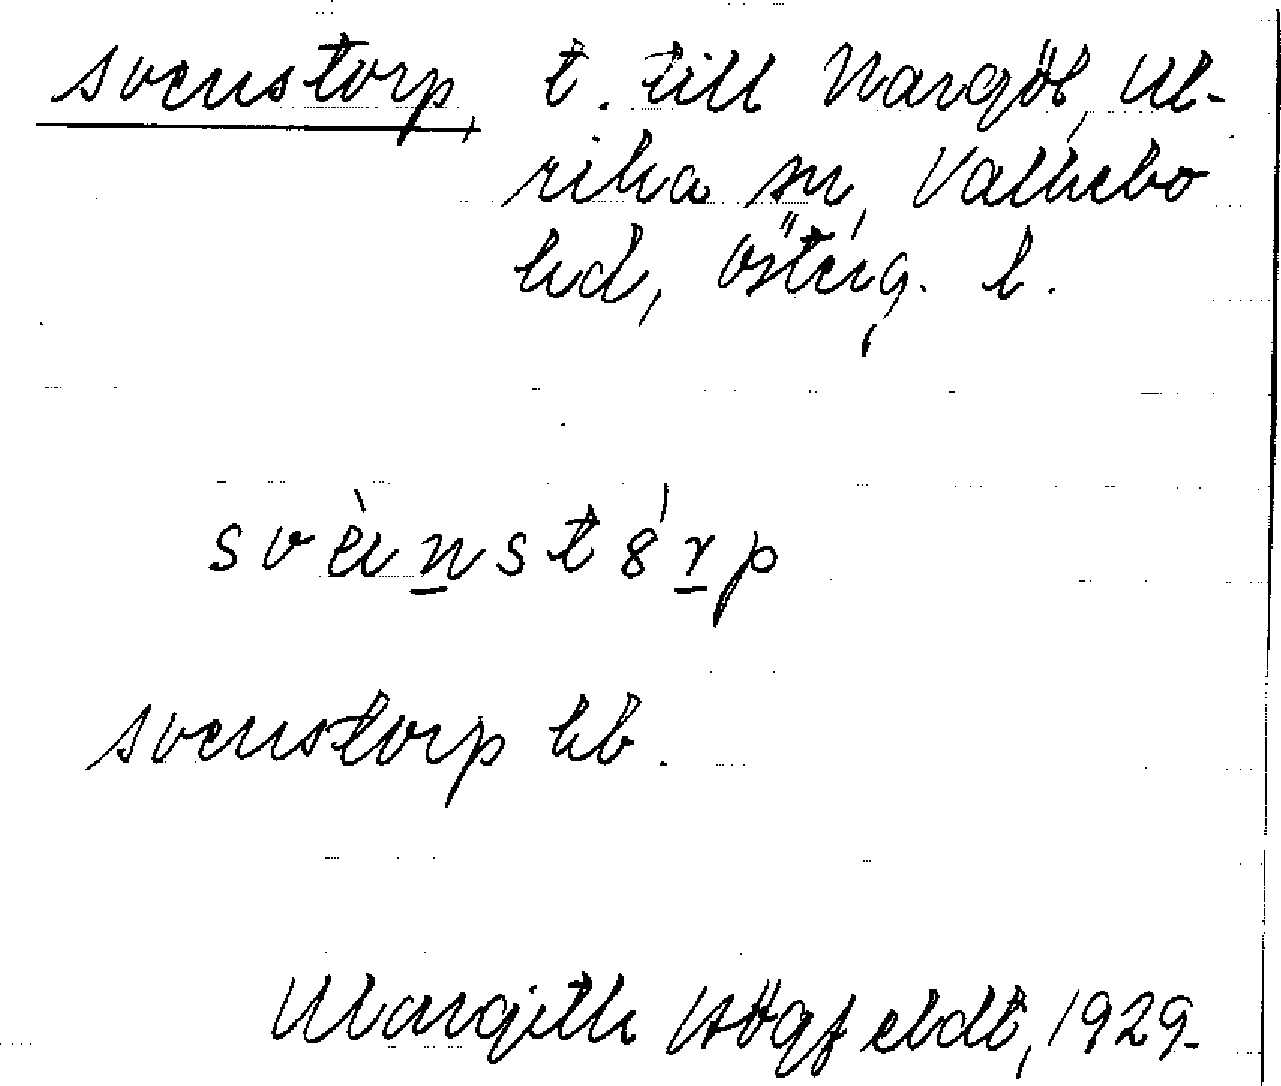 Svenstorp, t. till Nargöl, Ul-
rika sn, Valkebo
hd, Österg. l.
svèinstǻrp
Svenstorp hb.
Margith Högfeldt, 1929.